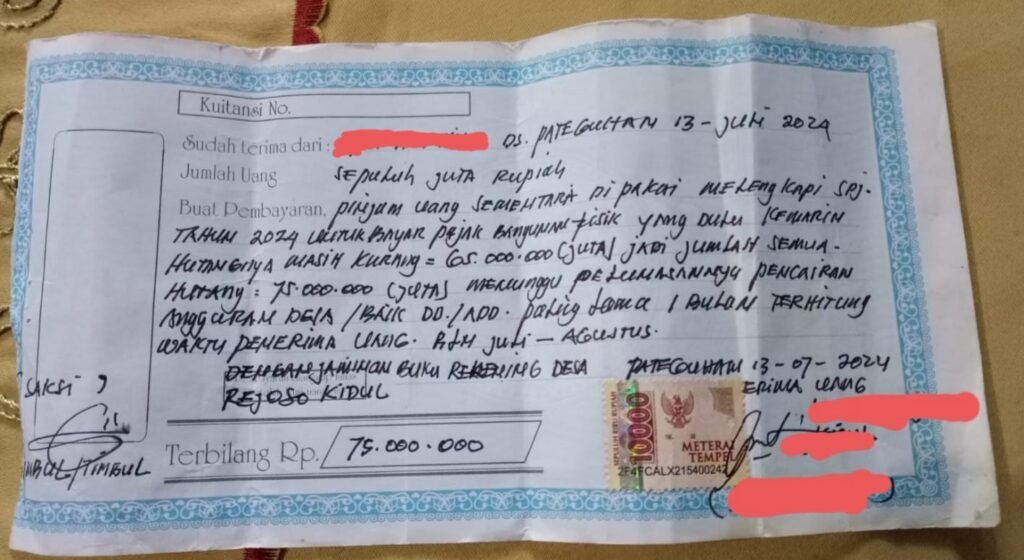 Kuitansi No.
Sudah terima dari : DS. PATEGUHAN 13 - JULI 2024
Jumlah Uang SEPULUH JUTA RUPIAH
Buat Pembayaran, PINJAM UANG SEMENTARA DI PAKAI MELENGKAPI SPJ.
TAHUN 2024 UNTUK BAYAR PAJAK BANGUNAN FISIK YANG DULU KEMARIN
HUTANGNYA MASIH KURANG = 65.000.000 (JUTA) JADI JUMLAH SEMUA.
HUTANG : 75.000.000 (JUTA) MENUNGGU PELUNASANNYA PENCAIRAN
ANGGURAN DESA / BAIK DD./ADD. PALING LAMA 1 BULAN TERHITUNG
WAKTU PENERIMA UANG. JULI - AGUSTUS.
DENGAN JAMINAN BUKU REKENING DESA PATEGUHAN 13-07-2024
REJOSO KIDUL ERIMA UANG
SAKSI ,
Terbilang Rp. 75.000.000
/TIMBUL
SEPULUH RIBU RUPIAH
10000
METERAI
TEMPEL
2F4FCALX215400242